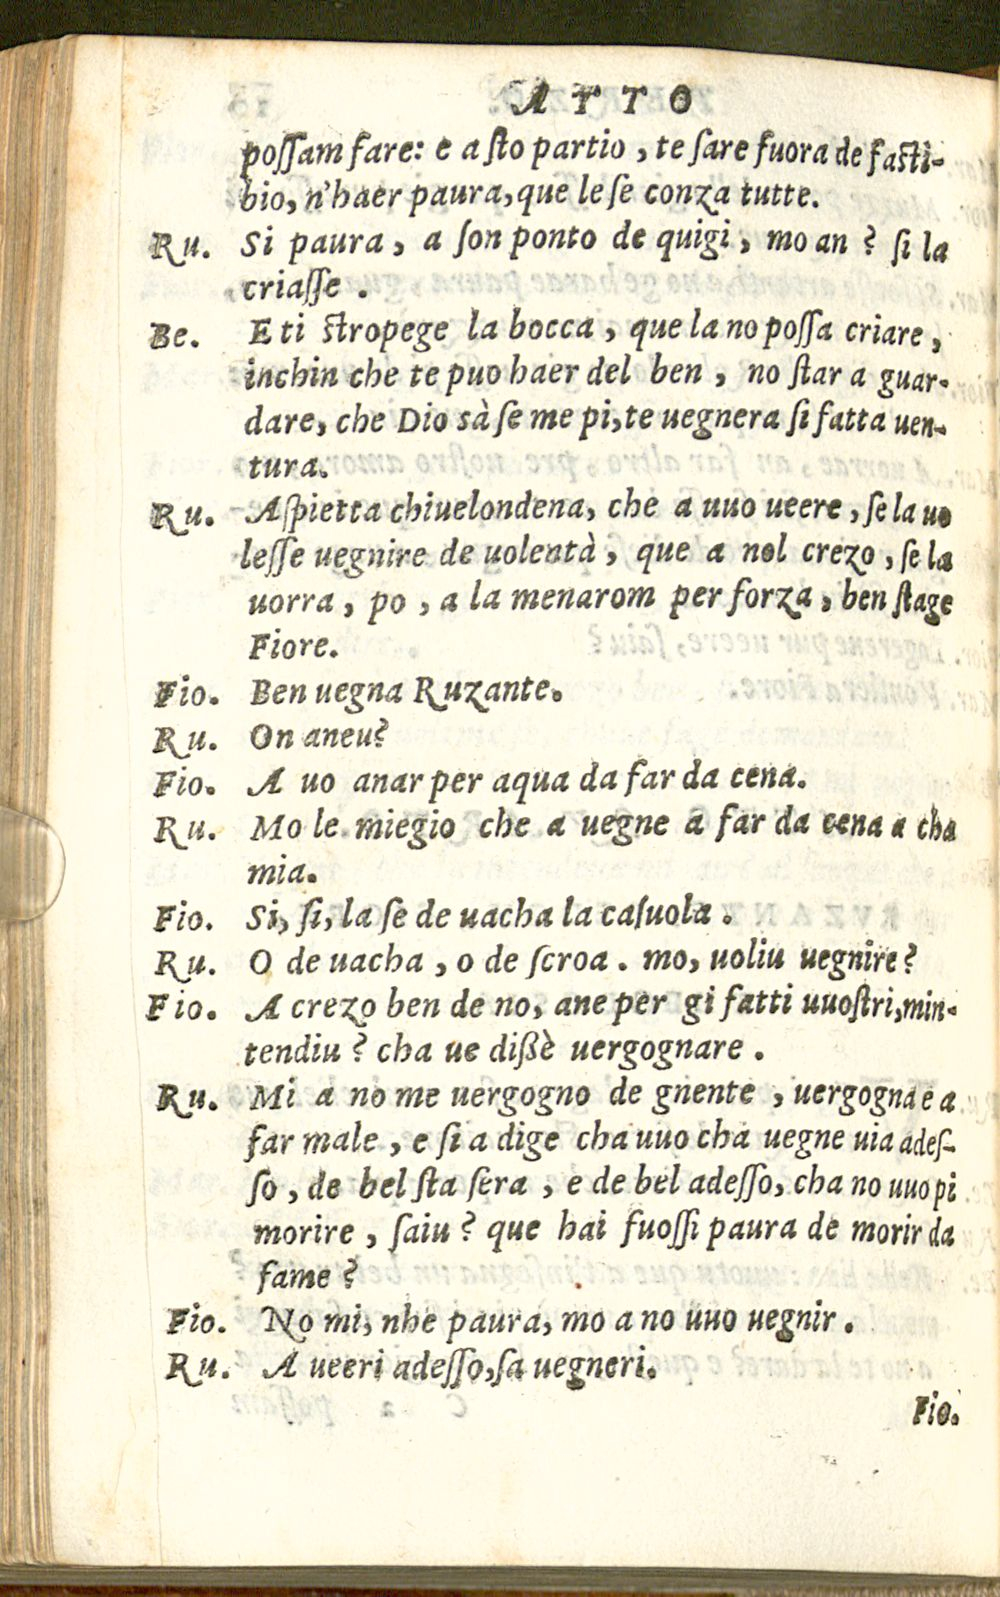 ATTO
poſſam fare: e a ſto partio, te ſare fuora de faſti-
bio, n'haer paura, que le ſe conza tutte.
Ru. Si paura, a ſon ponto de quigi, mo an? ſi la
criaſſe.
Be. E ti ſtropege la bocca, que la no poſſa criare,
inchin che te puo haer del ben, no ſtar a guar-
dare, che Dio sà ſe me pi, te uegnera ſi fatta uen-
tura.
Ru. Aſpietta chiuelondena, che a uuo ueere, ſe la uo
leſſe uegnire de uolentà, que a nol crezo, ſe la
uorra, po, a la menarom per forza, ben ſtage
Fiore.
Fio. Ben uegna Ruzante.
Ru. On aneu?
Fio. A uo anar per aqua da far da cena.
Ru. Mo le miegio che a uegne a far da cena a cha
mia.
Fio. Si, ſi, la ſe de uacha la caſuola.
Ru. O de uacha, o de ſcroa. mo, uoliu uegnire?
Fio. A crezo ben de no, ane per gi fatti uuoſtri, min-
tendiu? cha ue dißè uergognare.
Ru. Mi a no me uergogno de gnente, uergogna e a
far male, e ſi a dige cha uuo cha uegne uia adeſ-
ſo, de bel ſta ſera, e de bel adeſſo, cha no uuo pi
morire, ſaiu? que hai fuoſſi paura de morir da
fame?
Fio. No mi, nhe paura, mo a no uuo uegnir.
Ru. A ueeri adeſſo, ſa uegneri.
Fio.